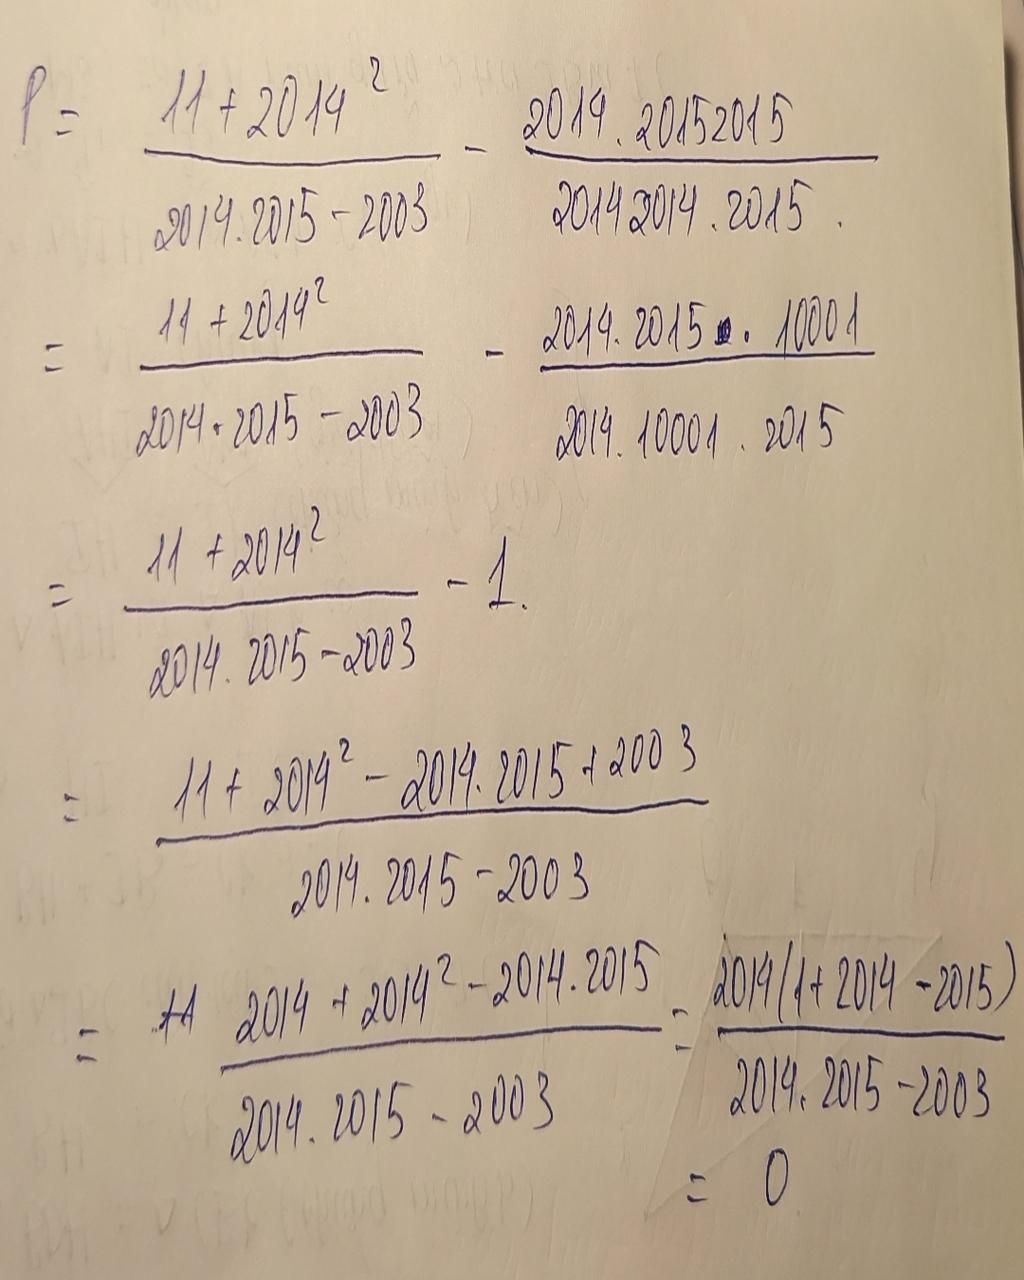 P = \frac{11 + 2014^2}{2014.2015 - 2003} - \frac{2014.20152015}{20142014.2015}.
= \frac{11 + 2014^2}{2014.2015 - 2003} - \frac{2014.2015.10001}{2014.10001.2015}
= \frac{11 + 2014^2}{2014.2015 - 2003} - 1.
= \frac{11 + 2014^2 - 2014.2015 + 2003}{2014.2015 - 2003}
= \frac{2014 + 2014^2 - 2014.2015}{2014.2015 - 2003} = \frac{2014(1 + 2014 - 2015)}{2014.2015 - 2003}
= 0